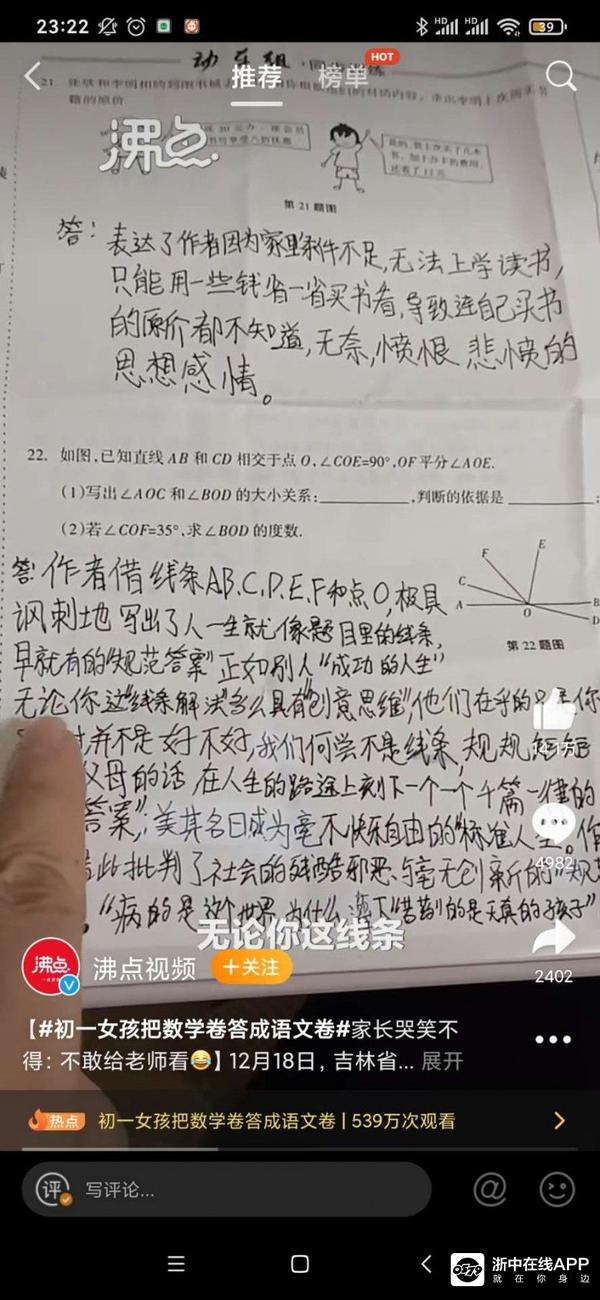 23:22
HD
HD
39
动车组·同
练
推荐
榜单
HOT
籍的原价
沸点
第 21 题图
答：表达了作者因为家里条件不足,无法上学读书,
只能用一些钱省一省买书看,导致连自己买书
的原价都不知道,无奈,愤恨 悲愤的
思想感情。
22. 如图,已知直线 AB 和 CD 相交于点 O,∠COE=90°,OF 平分∠AOE.
(1)写出∠AOC 和∠BOD 的大小关系:________,判断的依据是________;
(2)若∠COF=35°,求∠BOD 的度数.
E
F
C
A
O
B
D
第 22 题图
答:作者借线条AB.C.D.E.F和点O,极具
讽刺地写出了人一生就像题目里的线条,
早就有的“规范答案”正如别人“成功的人生”
无论你这“线条解法”多么具有“创意思维”,他们在乎的只是你
对,并不是好不好,我们何尝不是线条,规规矩矩
父母的话,在人生的路途上刻下一个一个千篇一律的
答案”;美其名曰成为毫不快乐自由的“标准人生”。作
借此批判了社会的残酷邪恶与毫无创新的“规范
。“病的是这个世界,为什么 的是天真的孩子”
无论你这线条
4982
2402
沸点
沸点视频
+关注
【#初一女孩把数学卷答成语文卷#家长哭笑不
得：不敢给老师看😂】12月18日，吉林省... 展开
热点
初一女孩把数学卷答成语文卷 | 539万次观看
评
写评论...
@
浙中在线APP
就在你身边